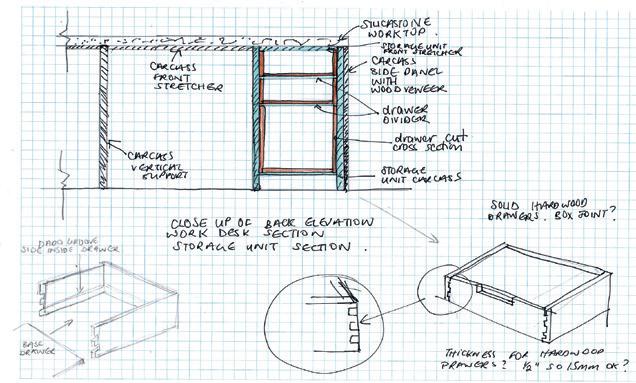 SILICASTONE
WORKTOP.
STORAGE UNIT
FRONT STRETCHER
CARCASS
FRONT
STRETCHER
CARCASS
SIDE PANEL
WITH
WOOD VENEER
drawer
DIVIDER
drawer cut
cross section
CARCASS
VERTICAL
SUPPORT
STORAGE
UNIT CARCASS
CLOSE UP OF BACK ELEVATION
WORK DESK SECTION
STORAGE UNIT SECTION.
SOLID HARDWOOD
DRAWERS. BOX JOINT?
DADO GROOVE
SIDE INSIDE DRAWER
BASE
DRAWER
THICKNESS FOR HARDWOOD
DRAWERS? 1/2" SO 15MM OK?